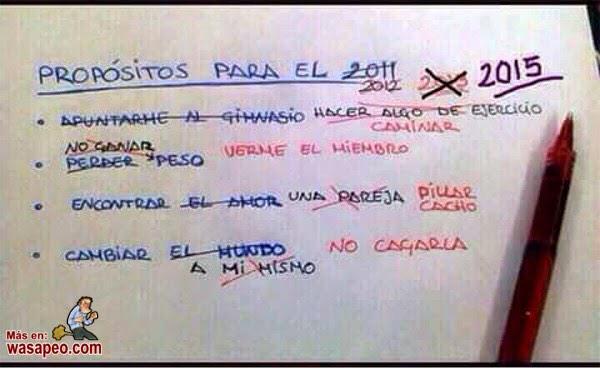 PROPÓSITOS PARA EL 2011 2015
2012
APUNTARME AL GIMNASIO HACER ALGO DE EJERCICIO
CAMINAR
NO GANAR VERME EL MIEMBRO
PERDER PESO
ENCONTRAR EL AMOR UNA PAREJA PILLAR
CACHO
CAMBIAR EL MUNDO NO CAGARLA
A MI MISMO
Más en:
wasapeo.com